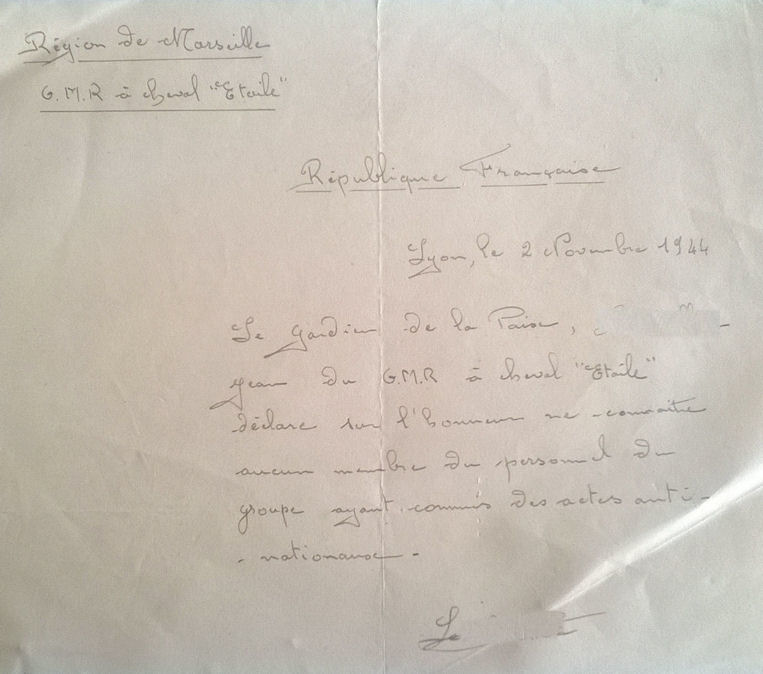 Région de Marseille
G.M.R à cheval "Etoile"
République Française
Lyon, le 2 Novembre 1944
Le gardien de la Paix,
Jean du G.M.R à cheval "Etoile"
déclare sur l'honneur ne connaitre
aucun membre du personnel du
groupe ayant commis des actes anti-
- nationaux -